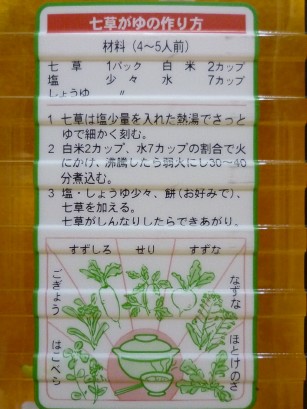 七草がゆの作り方
材料（4～5人前）
七草 1パック 白米 2カップ
塩 少々 水 7カップ
しょうゆ 〃
1 七草は塩少量を入れた熱湯でさっと
ゆで細かく刻む。
2 白米2カップ、水7カップの割合で火
にかけ、沸騰したら弱火にし30～40
分煮込む。
3 塩・しょうゆ少々、餅（お好みで）、
七草を加える。
七草がしんなりしたらできあがり。
すずしろ せり すずな
ごぎょう
なずな
はこべら
ほとけのざ